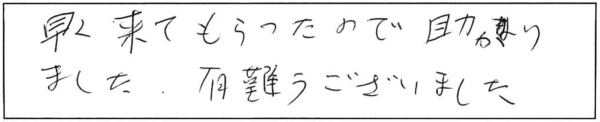 早く来てもらったので助かり
ました. 有難うございました